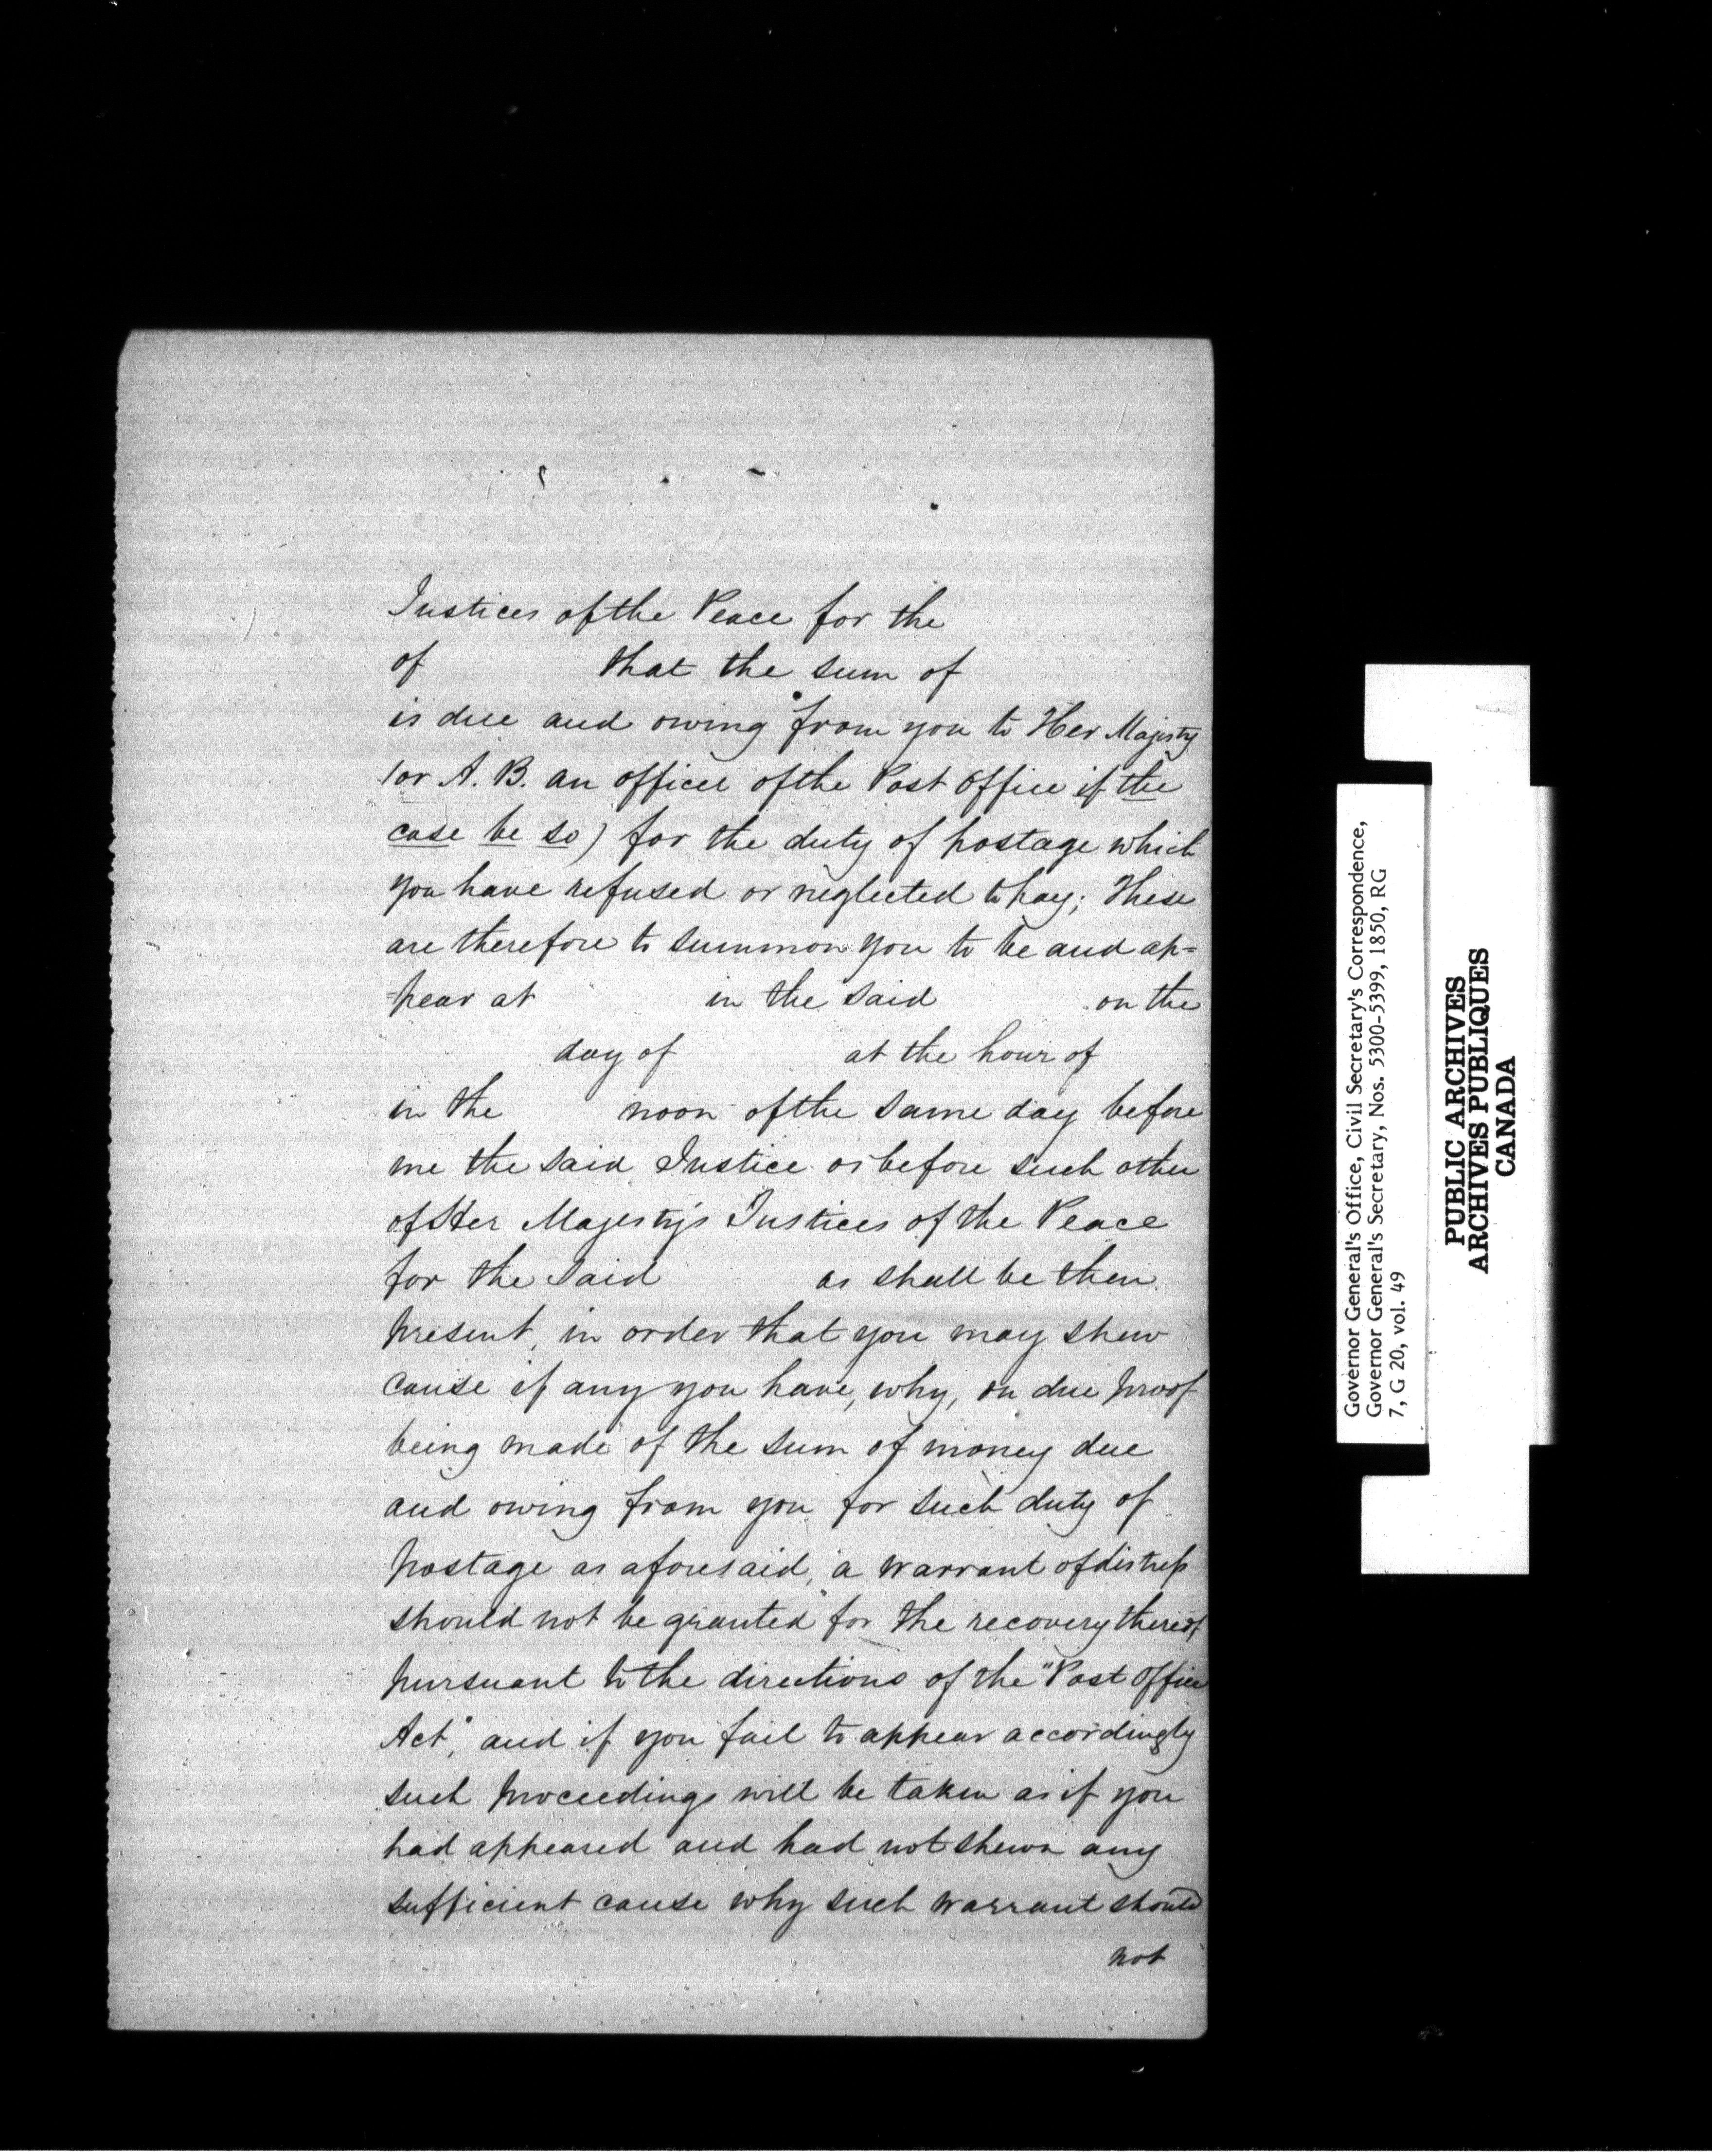 Justices of the Peace for the
of that the sum of
is due and owing from you to Her Majesty
(or A. B. an officer of the Post Office if the
case be so) for the duty of postage which
you have refused or neglected to pay; These
are therefore to summon you to be and ap=
=pear at in the said on the
day of at the hour of
in the noon of the same day before
me the said Justice or before such other
of Her Majesty's Justices of the Peace
for the said as shall be then
present, in order that you may shew
cause if any you have, why, on due proof
being made of the sum of money due
and owing from you for such duty of
postage as aforesaid, a warrant of distress
should not be granted for the recovery thereof
pursuant to the directions of the "Post Office
Act", and if you fail to appear accordingly
such proceedings will be taken as if you
had appeared and had not shewn any
sufficient cause why such warrant should
not
Governor General's Office, Civil Secretary's Correspondence,
Governor General's Secretary, Nos. 5300-5399, 1850, RG
7, G 20, vol. 49
PUBLIC ARCHIVES
ARCHIVES PUBLIQUES
CANADA